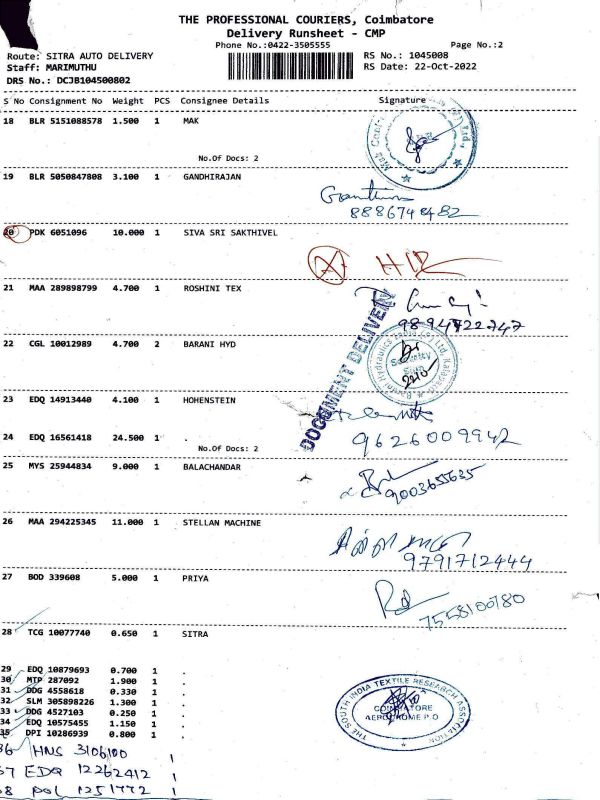 THE PROFESSIONAL COURIERS, Coimbatore
Delivery Runsheet - CMP
Phone No.:0422-3505555
Page No.:2
Route: SITRA AUTO DELIVERY
RS No.: 1045008
Staff: MARIMUTHU
RS Date: 22-Oct-2022
DRS No.: DCJB104500802
S No Consignment No Weight PCS Consignee Details Signature
18 BLR 5151088578 1.500 1 MAK
No.Of Docs: 2
19 BLR 5050847808 3.100 1 GANDHIRAJAN
20 PDK 6051096 10.000 1 SIVA SRI SAKTHIVEL
21 MAA 289898799 4.700 1 ROSHINI TEX
9894722747
22 CGL 10012989 4.700 2 BARANI HYD
DOCUMENT DELIVERY
23 EDQ 14913440 4.100 1 HOHENSTEIN
24 EDQ 16561418 24.500 1 .
9626009942
No.Of Docs: 2
25 MYS 25944834 9.000 1 BALACHANDAR
9003655635
26 MAA 294225345 11.000 1 STELLAN MACHINE
9791712444
27 BOD 339608 5.000 1 PRIYA
7558100780
28 TCG 10077740 0.650 1 SITRA
29 EDQ 10879693 0.700 1 .
30 MTP 287092 1.900 1 .
31 DDG 4558618 0.330 1 .
32 SLM 305898226 1.300 1 .
33 DDG 4527103 0.250 1 .
34 EDQ 10575455 1.150 1 .
35 DPI 10286939 0.800 1 .
THE SOUTH INDIA TEXTILE RESEARCH ASSOCIATION
COIMBATORE
AERODROME P.O
36 HNS 3106100 1
37 EDQ 12262412 1
38 POL 1251772 1